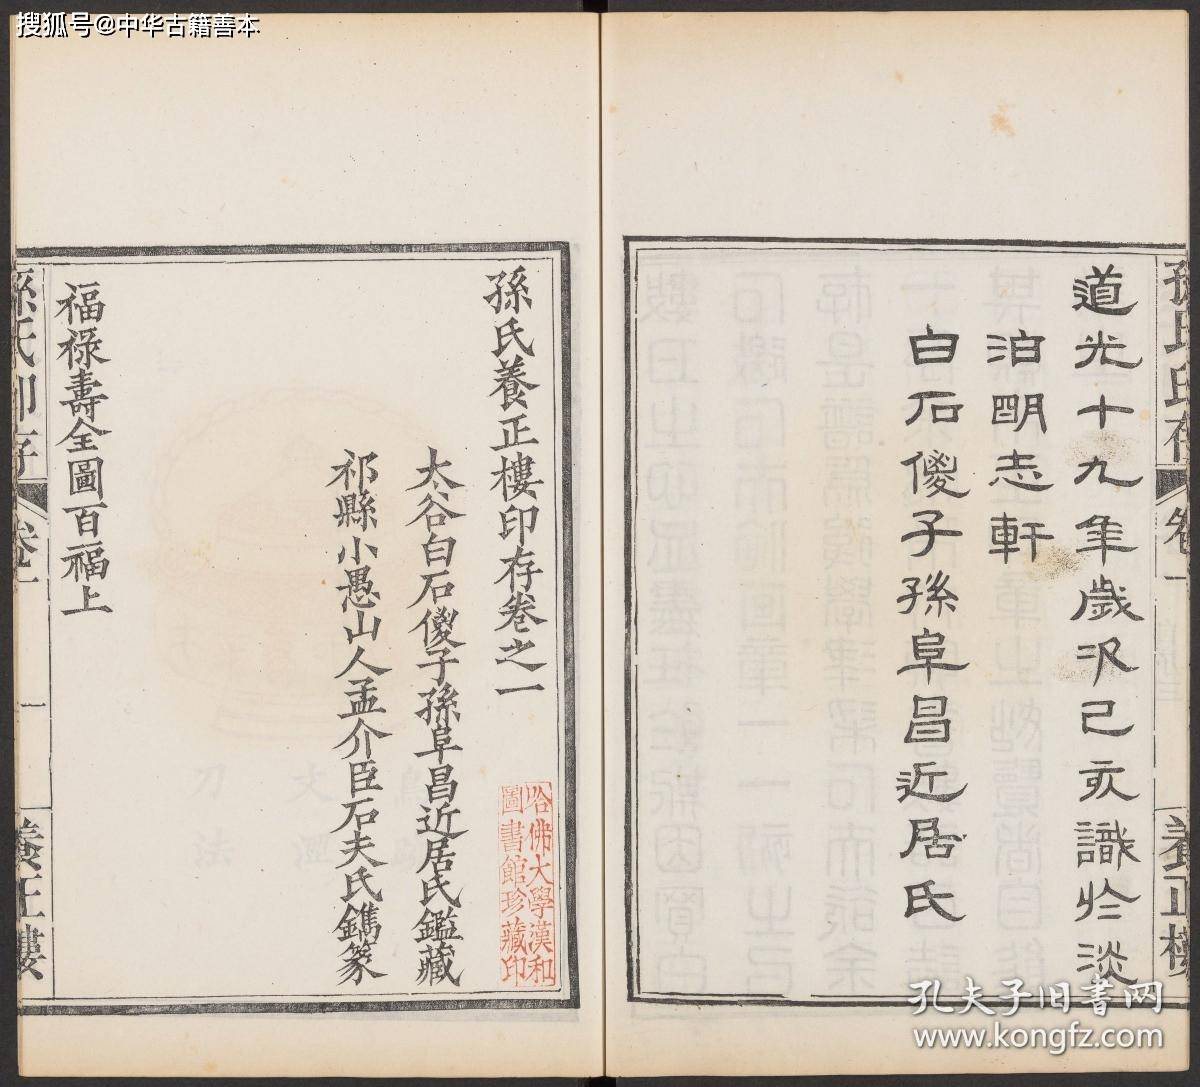 搜狐号@中华古籍善本
孫氏印存
卷一
養正樓
道光十九年歲次己亥識於淡
泊明志軒
白石傻子孫阜昌近居氏
孫氏養正樓印存卷之一
太谷白石傻子孫阜昌近居氏鑑藏
祁縣小愚山人孟介臣石夫氏鐫篆
哈佛大學漢和
圖書館珍藏印
福祿壽全圖百福上
孫氏印存
卷一
一
養正樓
孔夫子旧书网
www.kongfz.com